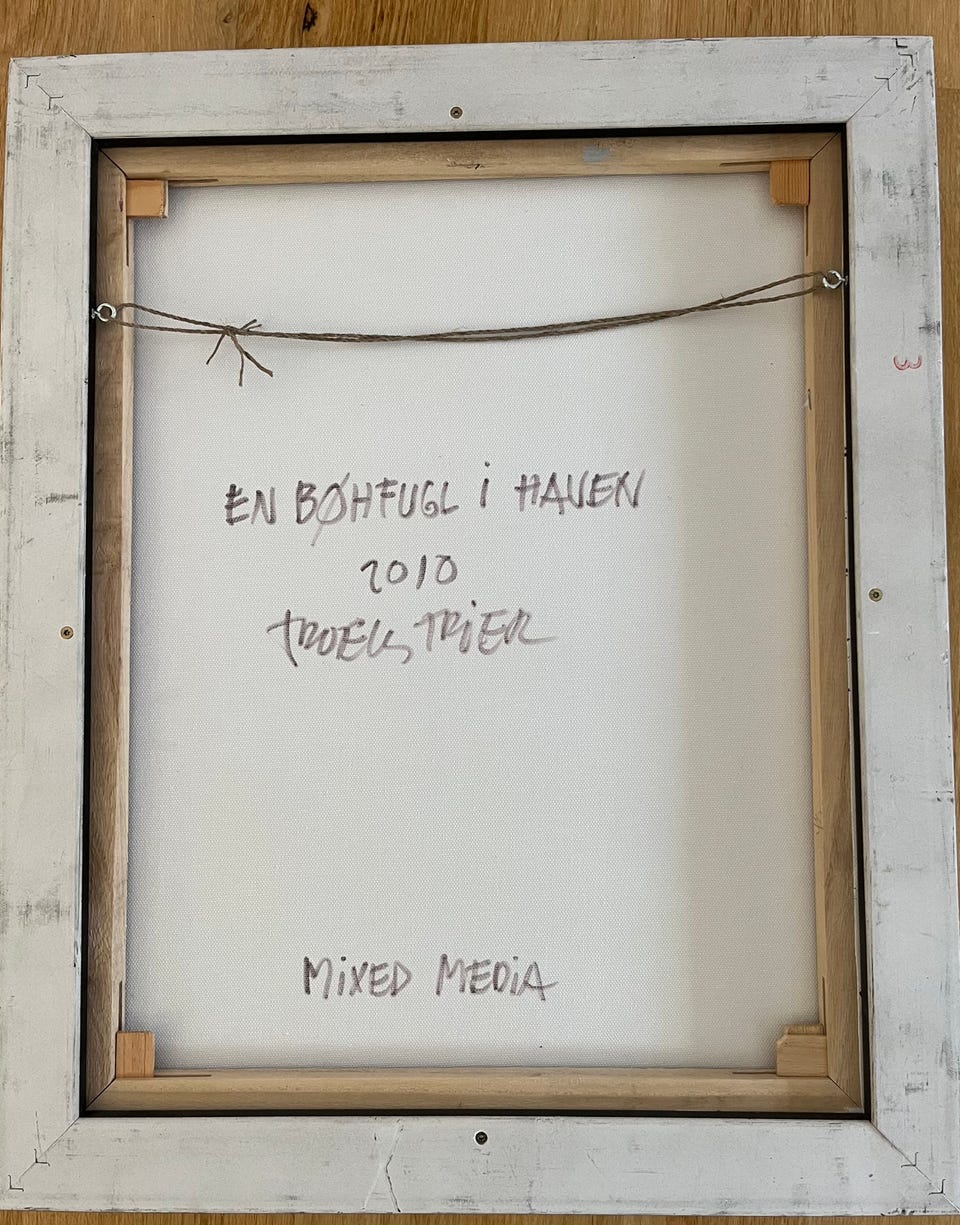 EN BØHFUGL i HAVEN
2010
TROELS TRIER
MiXED MEDiA
3